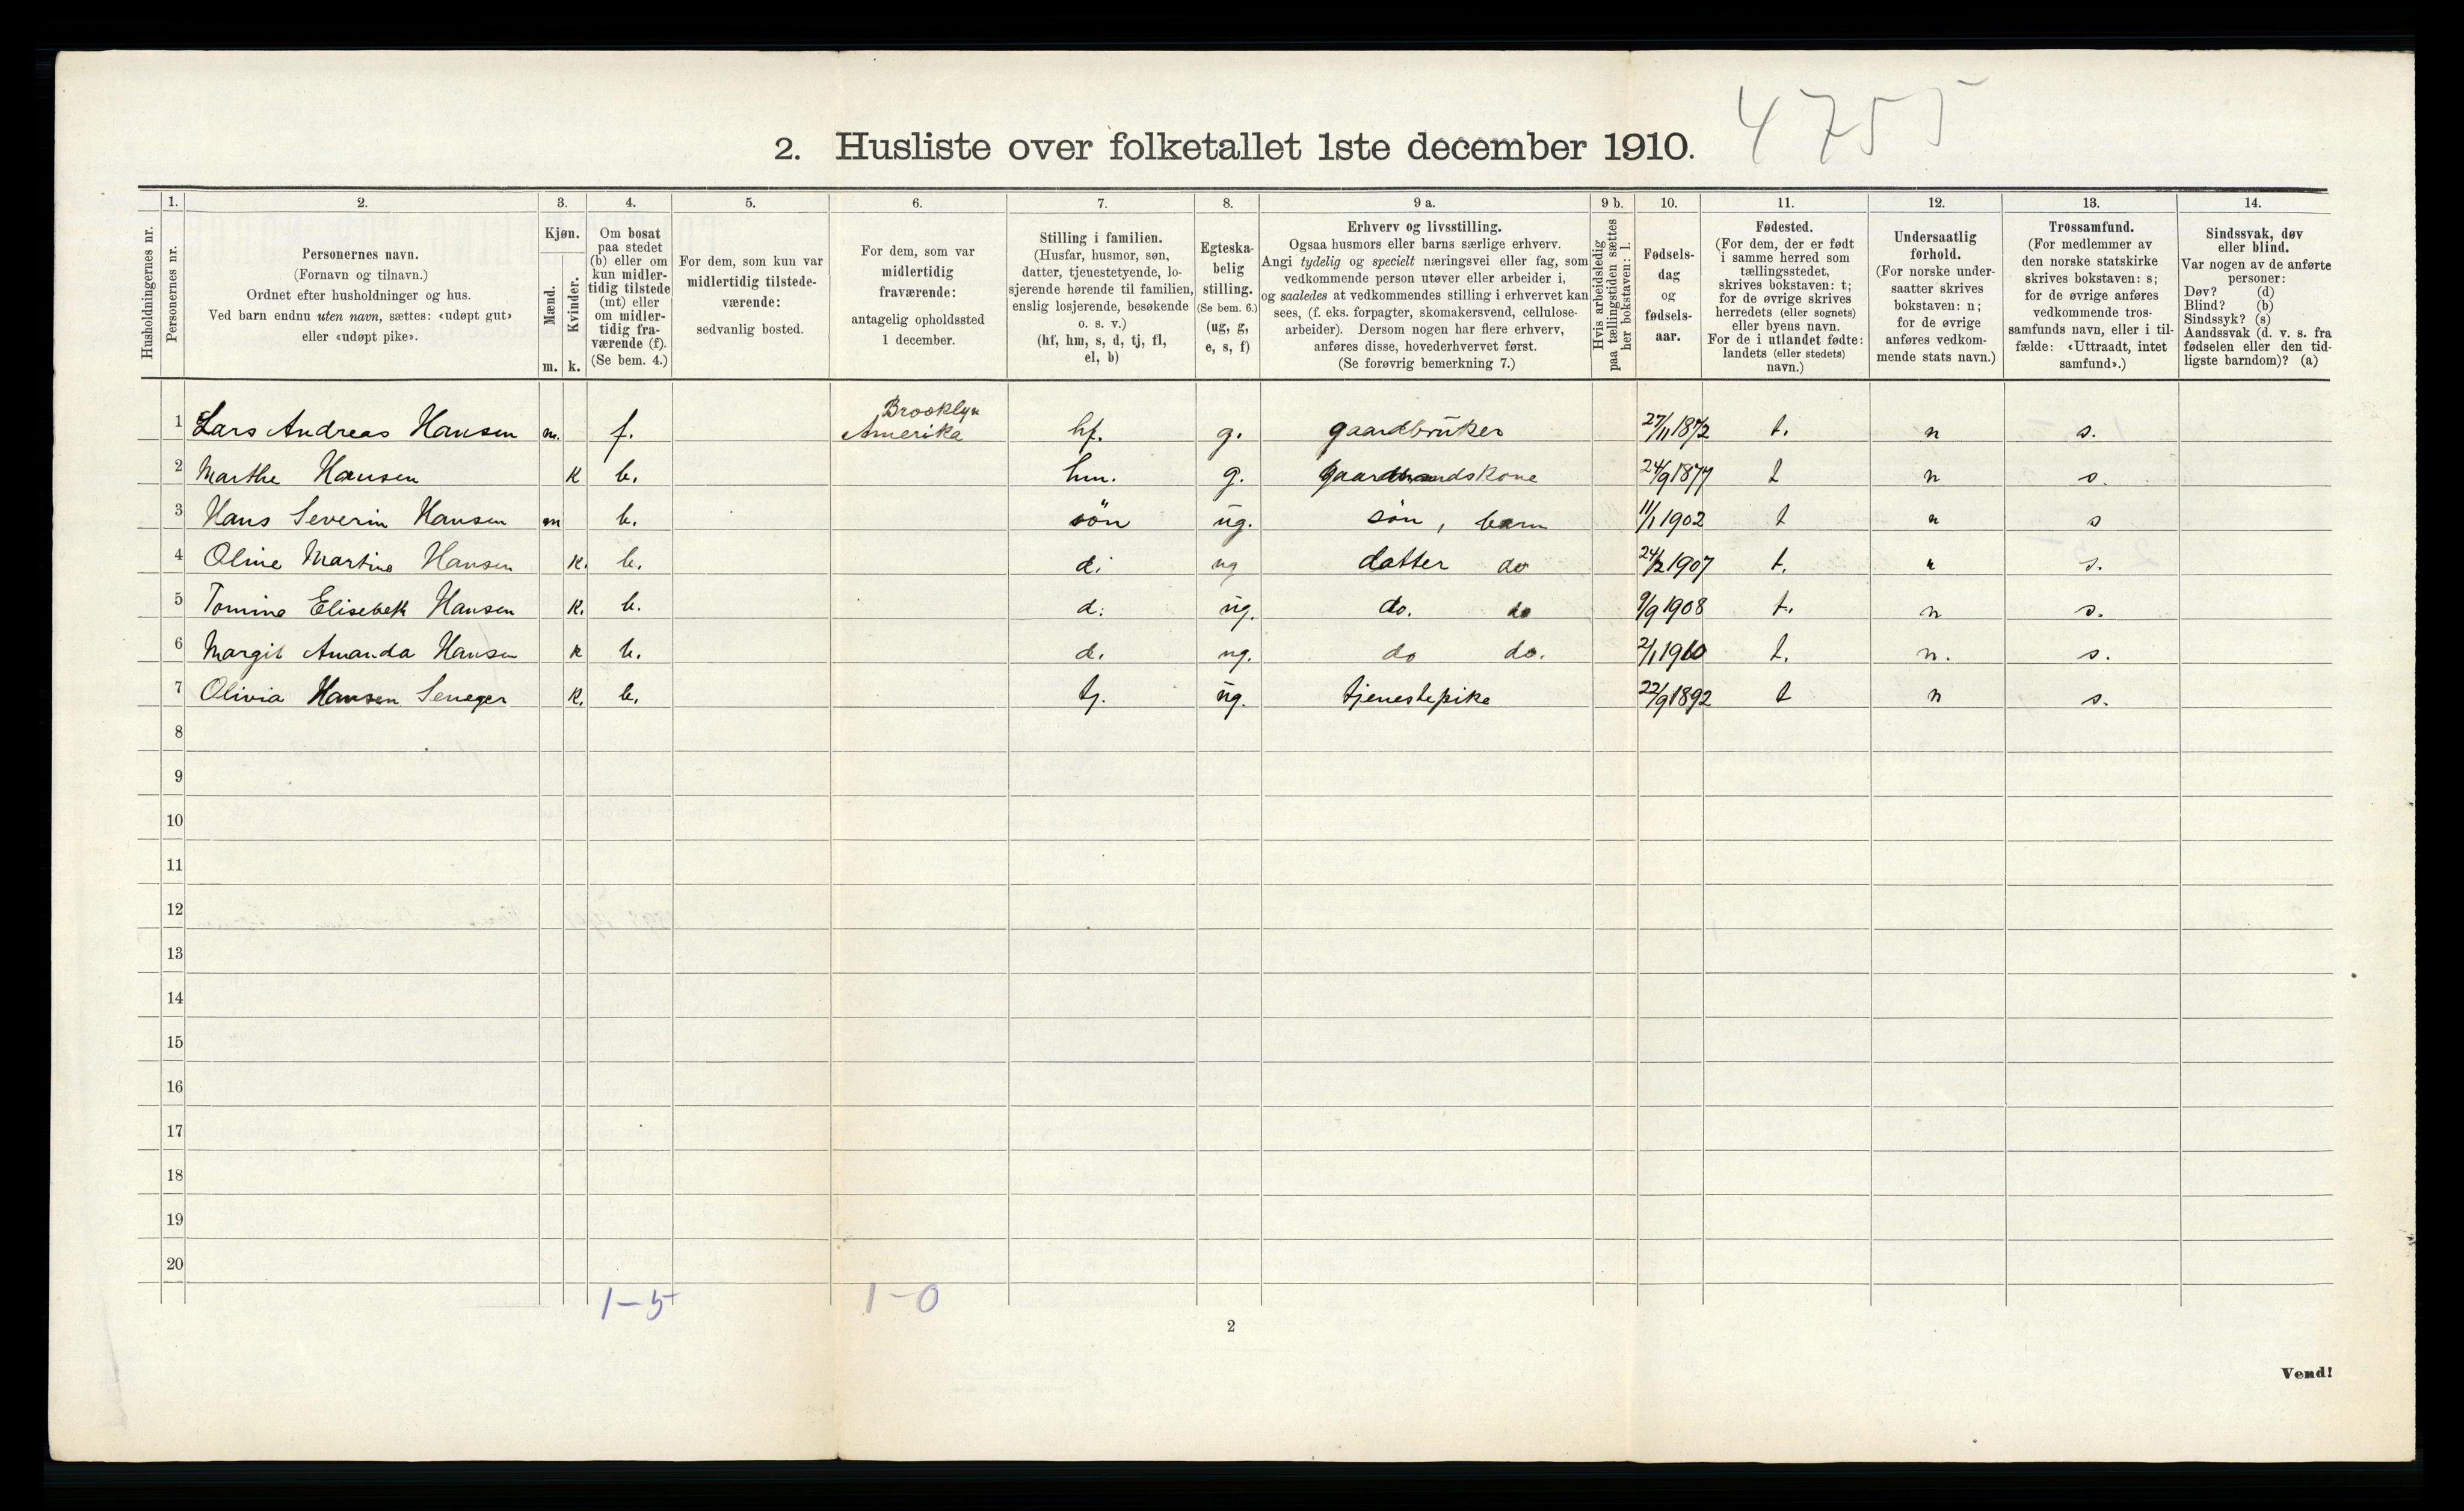 4755
2. Husliste over folketallet 1ste december 1910.
Husholdningernes nr.
1.
Personernes nr.
2.
Personernes navn.
(Fornavn og tilnavn.)
Ordnet efter husholdninger og hus.
Ved barn endnu uten navn, sættes: «udøpt gut»
eller «udøpt pike».
3.
Kjøn.
Mænd.
Kvinder.
m. k.
4.
Om bosat
paa stedet
(b) eller om
kun midler-
tidig tilstede
(mt) eller
om midler-
tidig fra-
værende (f).
(Se bem. 4.)
5.
For dem, som kun var
midlertidig tilstede-
værende:
sedvanlig bosted.
6.
For dem, som var
midlertidig
fraværende:
antagelig opholdssted
1 december.
7.
Stilling i familien.
(Husfar, husmor, søn,
datter, tjenestetyende, lo-
sjerende hørende til familien,
enslig losjerende, besøkende
o. s. v.)
(hf, hm, s, d, tj, fl,
el, b)
8.
Egteska-
belig
stilling.
(Se bem. 6.)
(ug, g,
e, s, f)
9 a.
Erhverv og livsstilling.
Ogsaa husmors eller barns særlige erhverv.
Angi tydelig og specielt næringsvei eller fag, som
vedkommende person utøver eller arbeider i,
og saaledes at vedkommendes stilling i erhvervet kan
sees, (f. eks. forpagter, skomakersvend, cellulose-
arbeider). Dersom nogen har flere erhverv,
anføres disse, hovederhvervet først.
(Se forøvrig bemerkning 7.)
9 b.
Hvis arbeidsledig
paa tællingstiden sættes
her bokstaven: l.
10.
Fødsels-
dag
og
fødsels-
aar.
11.
Fødested.
(For dem, der er født
i samme herred som
tællingsstedet,
skrives bokstaven: t;
for de øvrige skrives
herredets (eller sognets)
eller byens navn.
For de i utlandet fødte:
landets (eller stedets)
navn.)
12.
Undersaatlig
forhold.
(For norske under-
saatter skrives
bokstaven: n;
for de øvrige
anføres vedkom-
mende stats navn.)
13.
Trossamfund.
(For medlemmer av
den norske statskirke
skrives bokstaven: s;
for de øvrige anføres
vedkommende tros-
samfunds navn, eller i til-
fælde: «Uttraadt, intet
samfund».)
14.
Sindssvak, døv
eller blind.
Var nogen av de anførte
personer:
Døv? (d)
Blind? (b)
Sindssyk? (s)
Aandssvak (d. v. s. fra
fødselen eller den tid-
ligste barndom)? (a)
Brooklyn
1 Lars Andreas Hansen m. f. Amerika hf. g. gaardbruker 27/11 1872 t. n s.
2 Marthe Hansen k b. hm. g. Gaardmandskone 24/9 1877 t n s.
3 Hans Severin Hansen m b. sön ug. sön, barn 11/1 1902 t n s
4 Oline Martine Hansen k. b. d. ug datter do 24/2 1907 t. n s.
5 Tomine Elisebeth Hansen k. b. d. ug. do. do 9/9 1908 t. n s.
6 Margit Amanda Hansen k b. d. ug. do do. 2/1 1910 t. n. s.
7 Olivia Hansen k. b. tj. ug. tjenestepike 22/9 1892 t n s.
8
9
10
11
12
13
14
15
16
17
18
19
20
1-5 1-0
2
Vend!